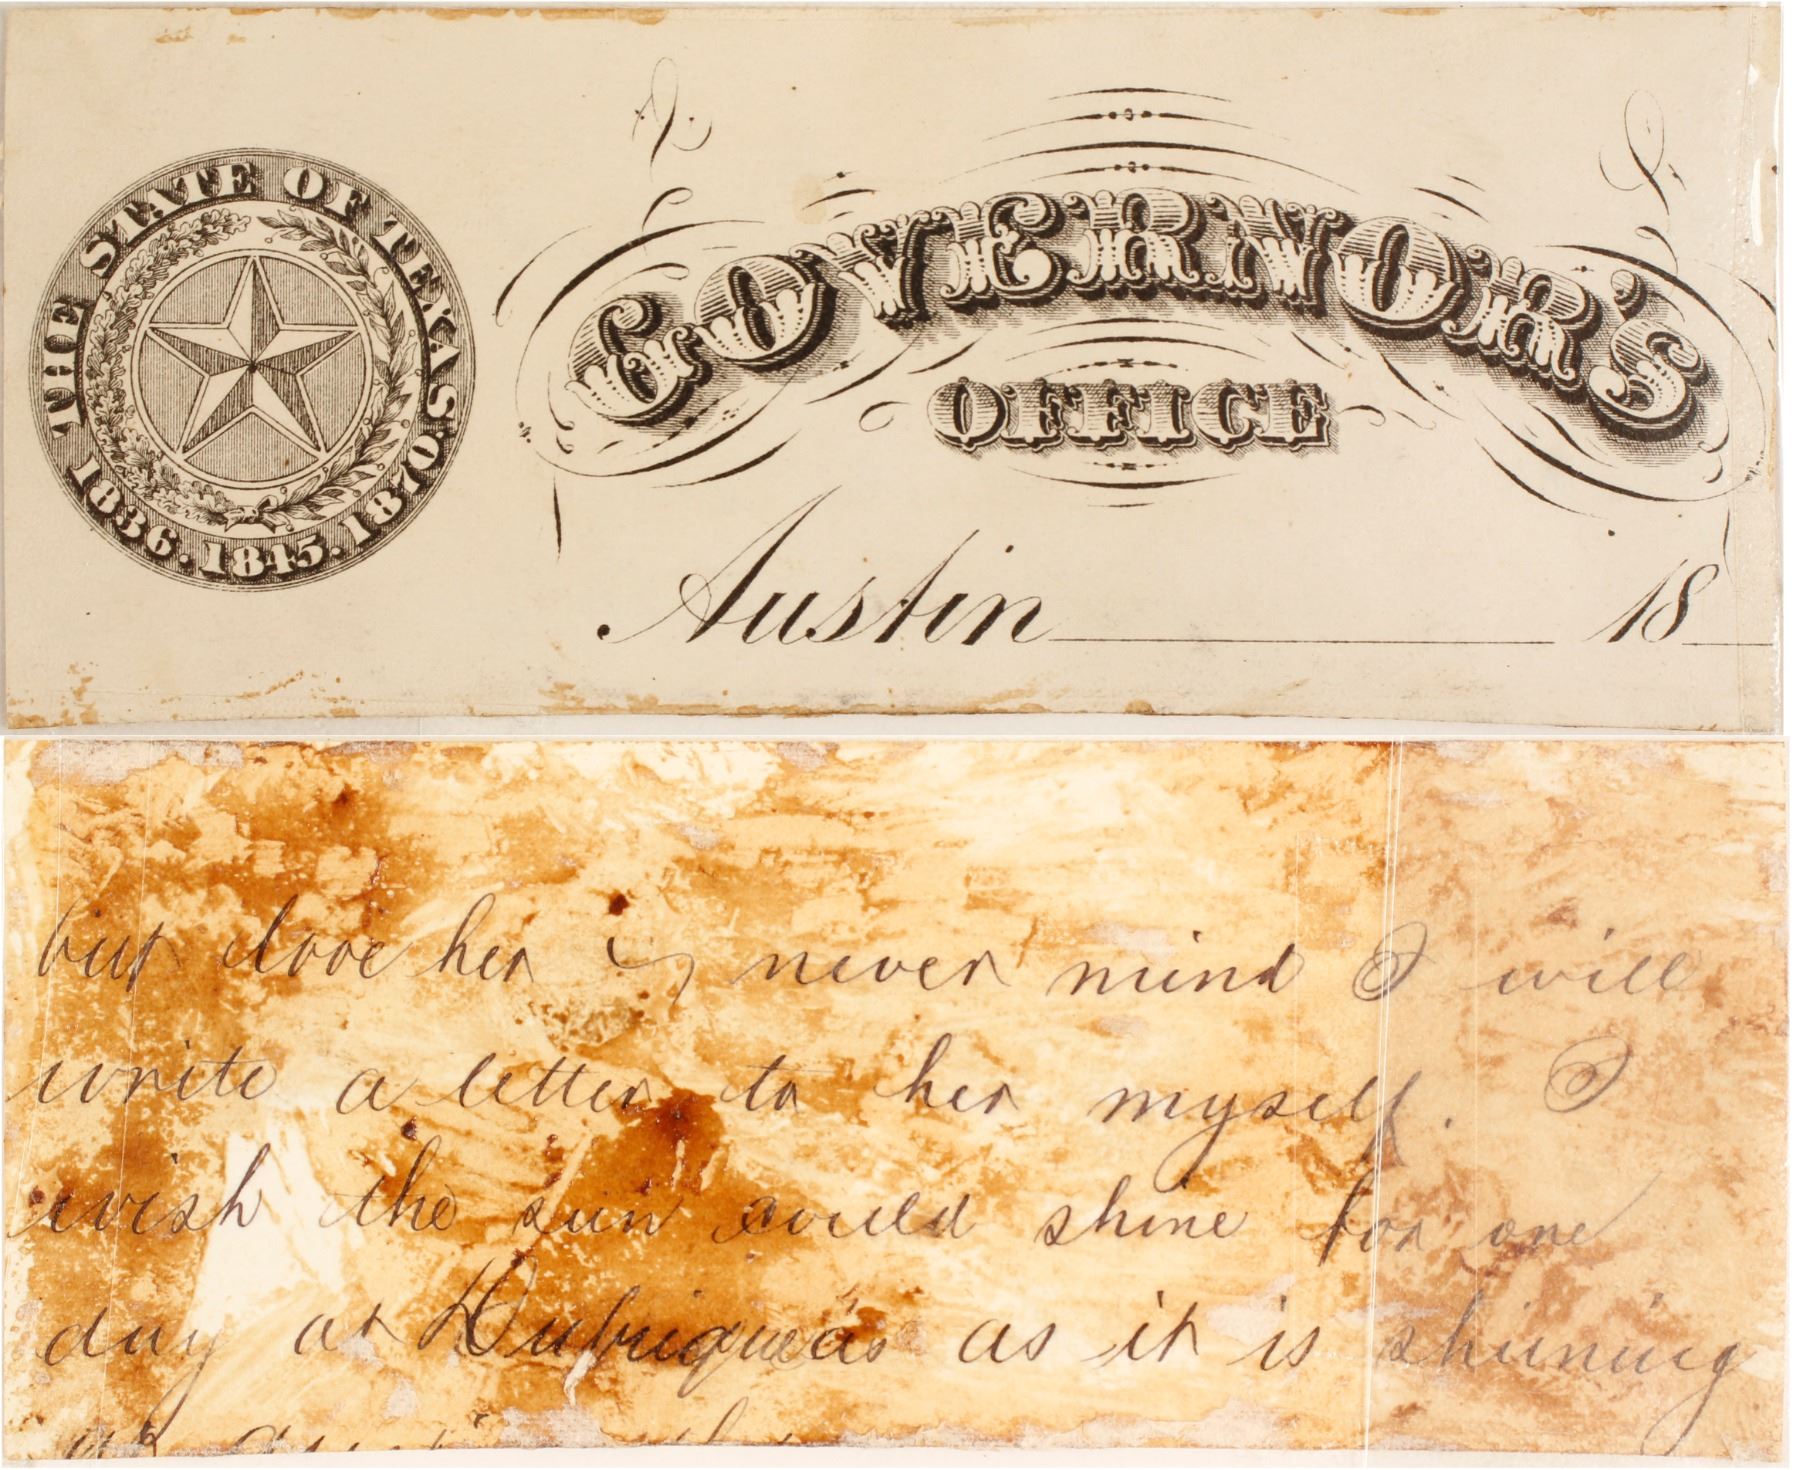 THE STATE OF TEXAS.
1836. 1845. 1870.
GOVERNOR'S
OFFICE
Austin 18
but love her & never mind I will
write a letter to her myself. I
wish the sun could shine for one
day at as it is shining